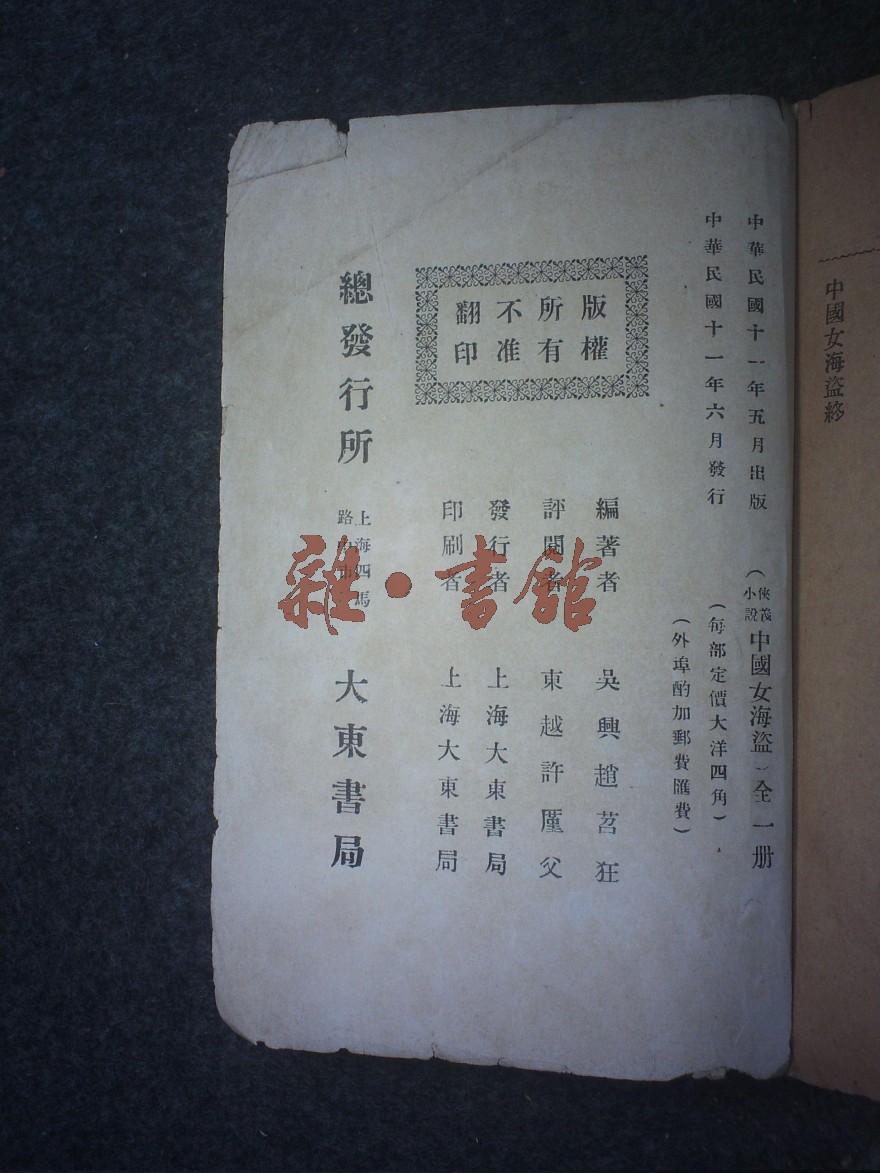 中國女海盜終
中華民國十一年五月出版
(俠義小說中國女海盜)全一册
中華民國十一年六月發行
(每部定價大洋四角)
(外埠酌加郵費匯費)
版權
所有
不准
翻印
編著者 吳興趙苕狂
評閱者 東越許廑父
發行者 上海大東書局
印刷者 上海大東書局
總發行所 上海四馬路中市 大東書局
雜·書館